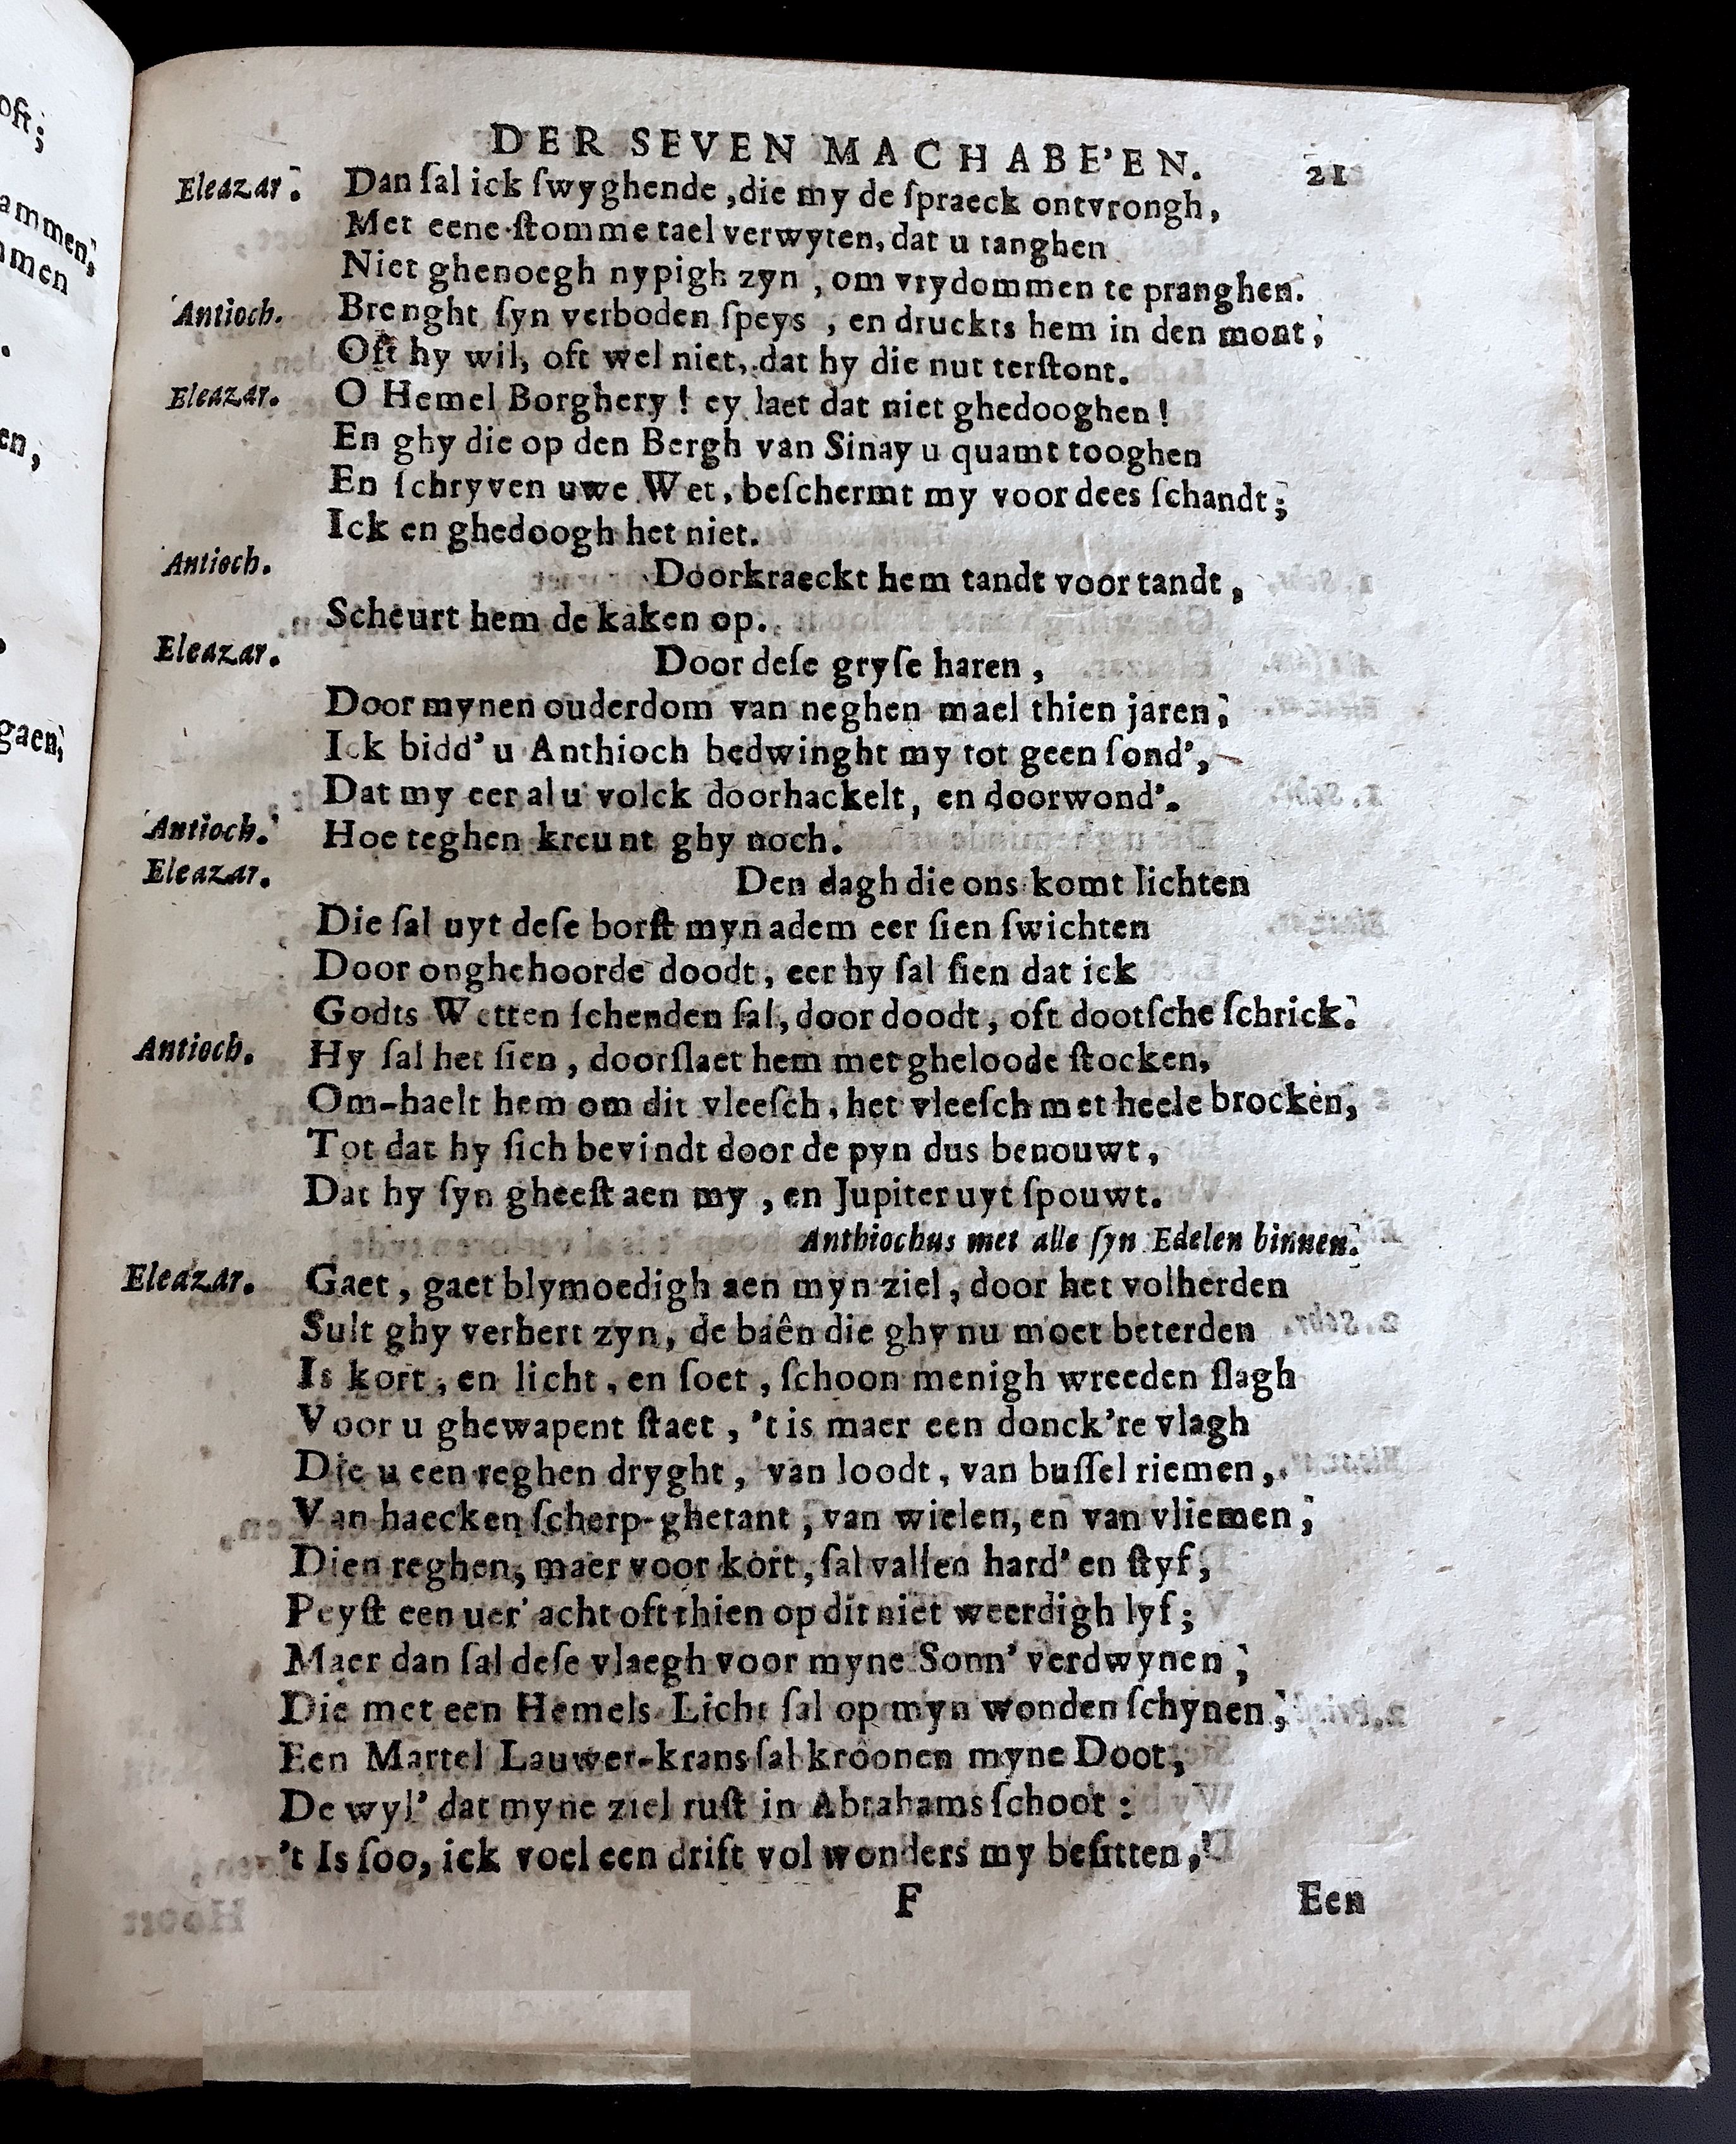 oft;
ammen,
mmen
en,
gaen,
DER SEVEN MACHABE'EN. 21
Eleazar. Dan ſal ick ſwyghende ,die my de ſpraeck ontvrongh,
Met eene ſtomme tael verwyten, dat u tanghen
Niet ghenoegh nypigh zyn , om vrydommen te pranghen.
Antioch. Brenght ſyn verboden ſpeys , en druckts hem in den mont,
Oft hy wil, oft wel niet, dat hy die nut terſtont.
Eleazar. O Hemel Borghery ! ey laet dat niet ghedooghen !
En ghy die op den Bergh van Sinay u quamt tooghen
En ſchryven uwe Wet, beſchermt my voor dees ſchandt;
Ick en ghedoogh het niet.
Antioch. Doorkraeckt hem tandt voor tandt,
Scheurt hem de kaken op.
Eleazar. Door deſe gryſe haren ,
Door mynen ouderdom van neghen mael thien jaren,
Ick bidd' u Anthioch bedwinght my tot geen ſond',
Dat my eer al u volck doorhackelt, en doorwond'.
Antioch. Hoe teghen kreunt ghy noch.
Eleazar. Den dagh die ons komt lichten
Die ſal uyt deſe borſt myn adem eer ſien ſwichten
Door onghehoorde doodt, eer hy ſal ſien dat ick
Godts Wetten ſchenden ſal, door doodt, oft dootſche ſchrick.
Antioch. Hy ſal het ſien , doorſlaet hem met gheloode ſtocken,
Om-haelt hem om dit vleeſch, het vleeſch met heele brocken,
Tot dat hy ſich bevindt door de pyn dus benouwt,
Dat hy ſyn gheeſt aen my , en Jupiter uyt ſpouwt.
Anthiochus met alle ſyn Edelen binnen.
Eleazar. Gaet , gaet blymoedigh aen myn ziel, door het volherden
Sult ghy verhert zyn, de baên die ghy nu moet beterden
Is kort, en licht, en ſoet, ſchoon menigh wreeden ſlagh
Voor u ghewapent ſtaet , 't is maer een donck're vlagh
Die u een reghen dryght, van loodt, van buſſel riemen,
Van haecken ſcherp-ghetant, van wielen, en van vliemen;
Dien reghen, maer voor kort, ſal vallen hard' en ſtyf,
Peyſt een uer' acht oft thien op dit niet weerdigh lyf;
Maer dan ſal deſe vlaegh voor myne Sonn' verdwynen ,
Die met een Hemels Licht ſal op myn wonden ſchynen,
Een Martel Lauwer-krans ſal kroonen myne Doot,
De wyl' dat myne ziel ruſt in Abrahams ſchoot :
't Is ſoo, ick voel een drift vol wonders my beſitten,
F Een